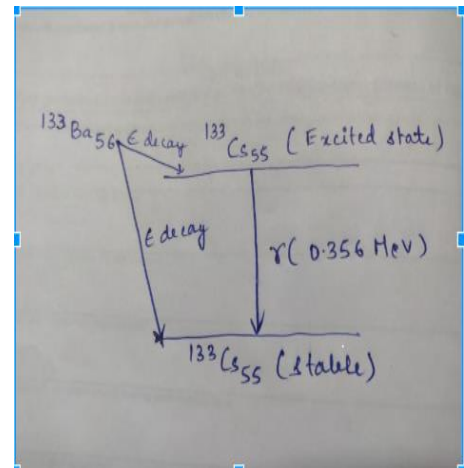 ¹³³Ba₅₆ ε decay ¹³³Cs₅₅ (Excited state)
ε decay
γ(0.356 MeV)
¹³³Cs₅₅ (stable)